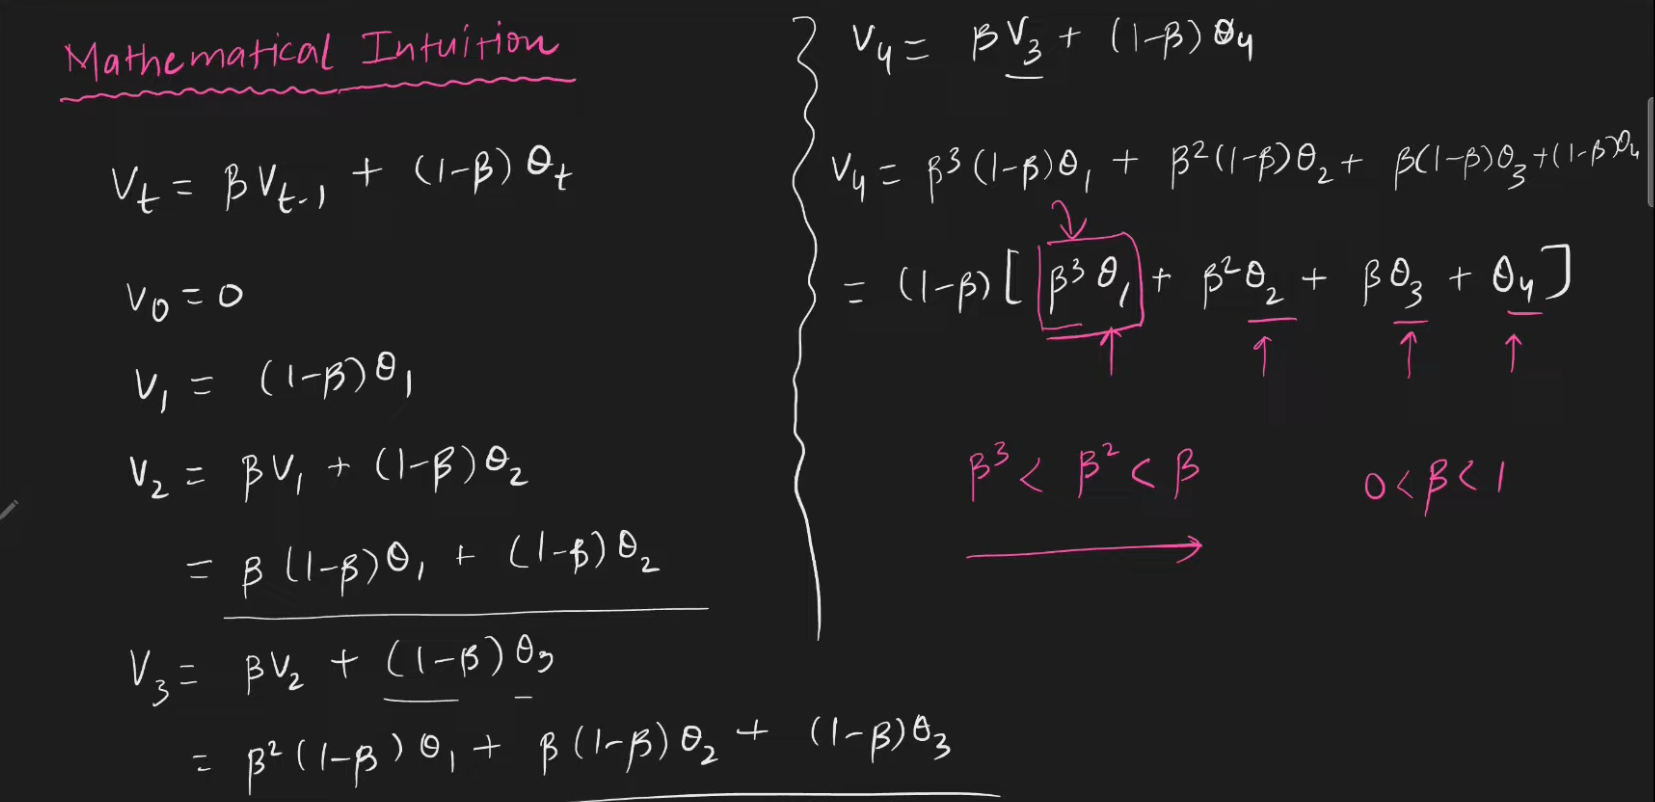 Mathematical Intuition
V_t = βV_{t-1} + (1-β)θ_t
V_0 = 0
V_1 = (1-β)θ_1
V_2 = βV_1 + (1-β)θ_2
= β(1-β)θ_1 + (1-β)θ_2
V_3 = βV_2 + (1-β)θ_3
= β²(1-β)θ_1 + β(1-β)θ_2 + (1-β)θ_3
V_4 = βV_3 + (1-β)θ_4
V_4 = β³(1-β)θ_1 + β²(1-β)θ_2 + β(1-β)θ_3 + (1-β)θ_4
= (1-β)[β³θ_1 + β²θ_2 + βθ_3 + θ_4]
β³ < β² < β    0 < β < 1